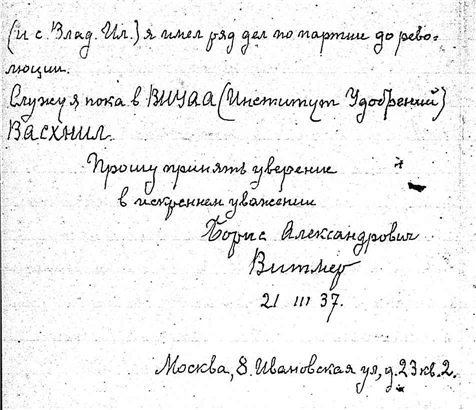 (и с. Влад. Ил.) я имел ряд дел по партии до рево-
люции.
Служу я пока в ВИУАА (Институт Удобрений)
ВАСХНИЛ.
Прошу принять уверение
в искреннем уважении
Борис Александрович
Витмер
21 III 37.
Москва, 8. Ивановская ул, д. 23 кв. 2.